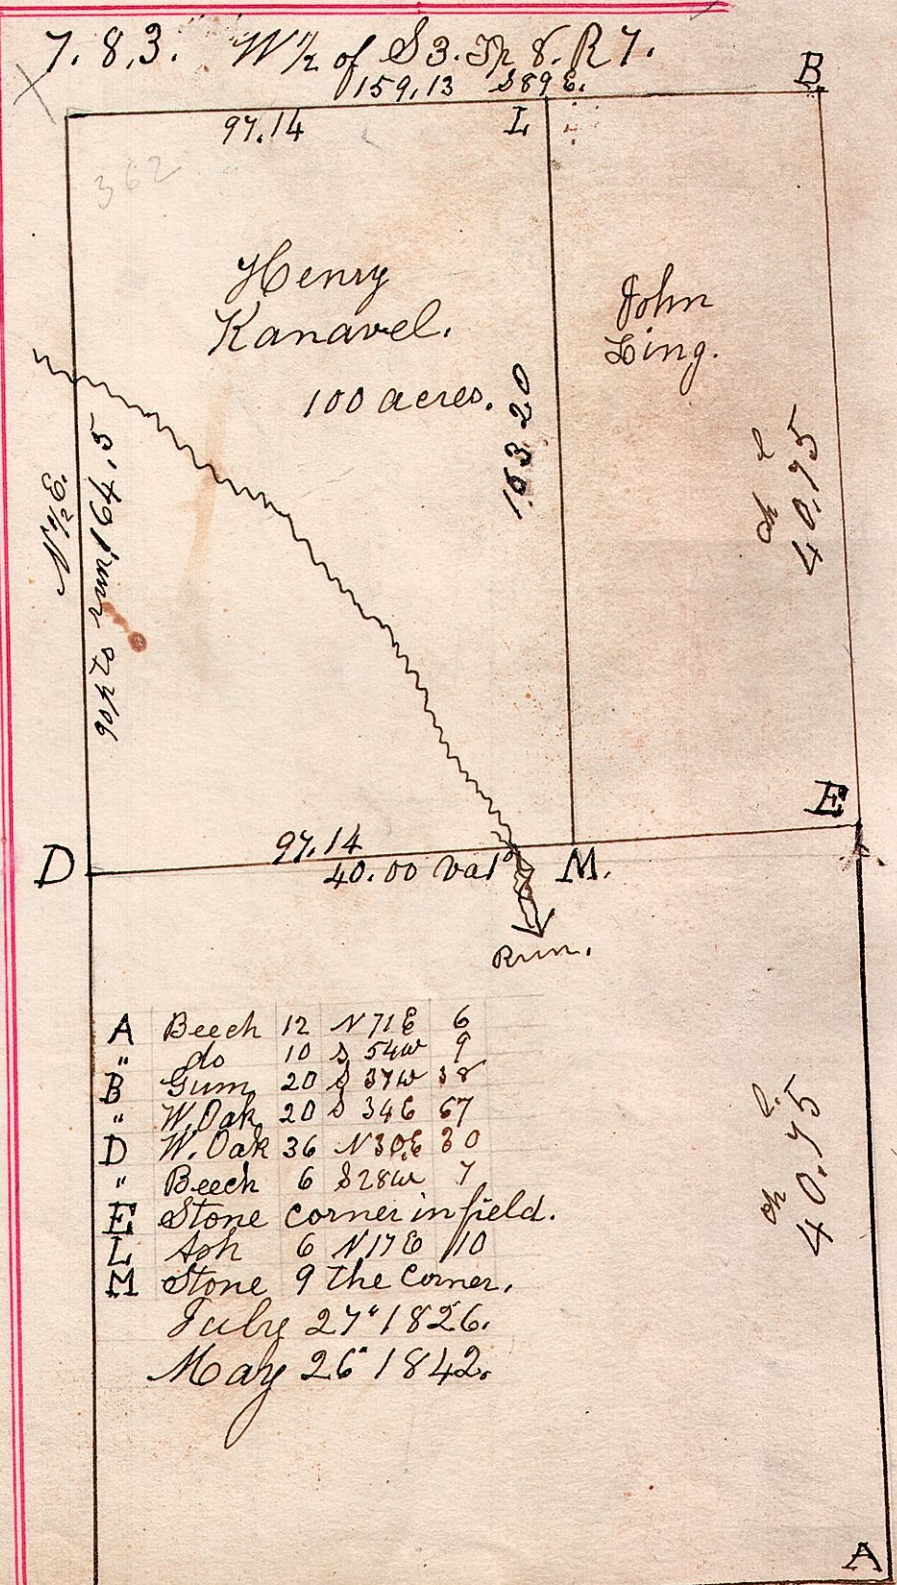 7.8.3. W ½ of S3. Tp 8. R 7.
159.13 S89E.
B
97.14
L
362
Henry
Kanavel.
100 acres.
John
163.20
40.75
E
D
97.14
40.00 Var
M.
Run.
A Beech 12 N71E 6
" do 10 S 54W 9
B Gum 20 S 37W 38
" W. Oak 20 S 34E 67
D W. Oak 36 N30E 30
" Beech 6 S28W 7
E Stone corner in field.
L Ash 6 N17E 10
M Stone 9 the Corner.
July 27" 1826.
May 26" 1842.
40.75
A